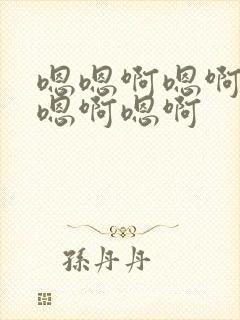 嗯嗯啊嗯啊
嗯啊嗯啊
孫丹丹